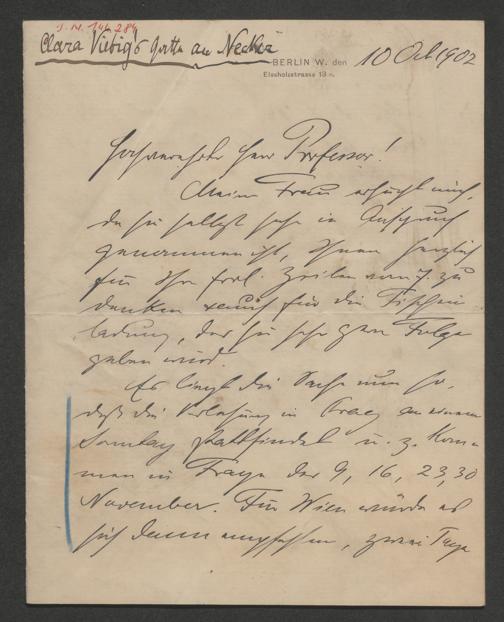 J. N. 144.284
Clara Viebigs Gatte an Necker
BERLIN W. den 10 Oct 1902
Elssholzstrasse 13 II.
Hochverehrter Herr Professor!
Meine Frau ersucht mich,
da sie selbst sehr in Anspruch
genommen ist, Ihnen herzlich
für Ihre frdl. Zeilen vom 7. zu
danken, auch für die Tischein-
ladung, der sie sehr gern Folge
geben wird.
Es liegt die Sache nun so,
daß die Vorlesung in Prag an einem
Sonntag stattfindet u. z. kom-
men in Frage der 9, 16, 23, 30
November. Für Wien würde es
sich dann empfehlen, zwei Tage